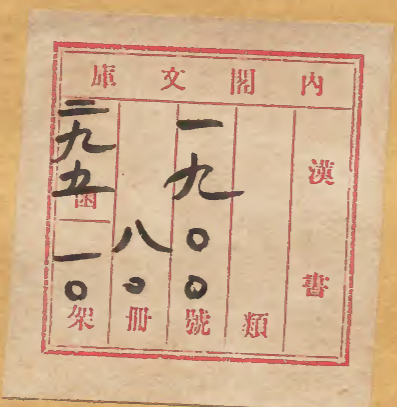 內閣文庫
漢書
類
一九〇〇號
八〇冊
二九五函
一〇架